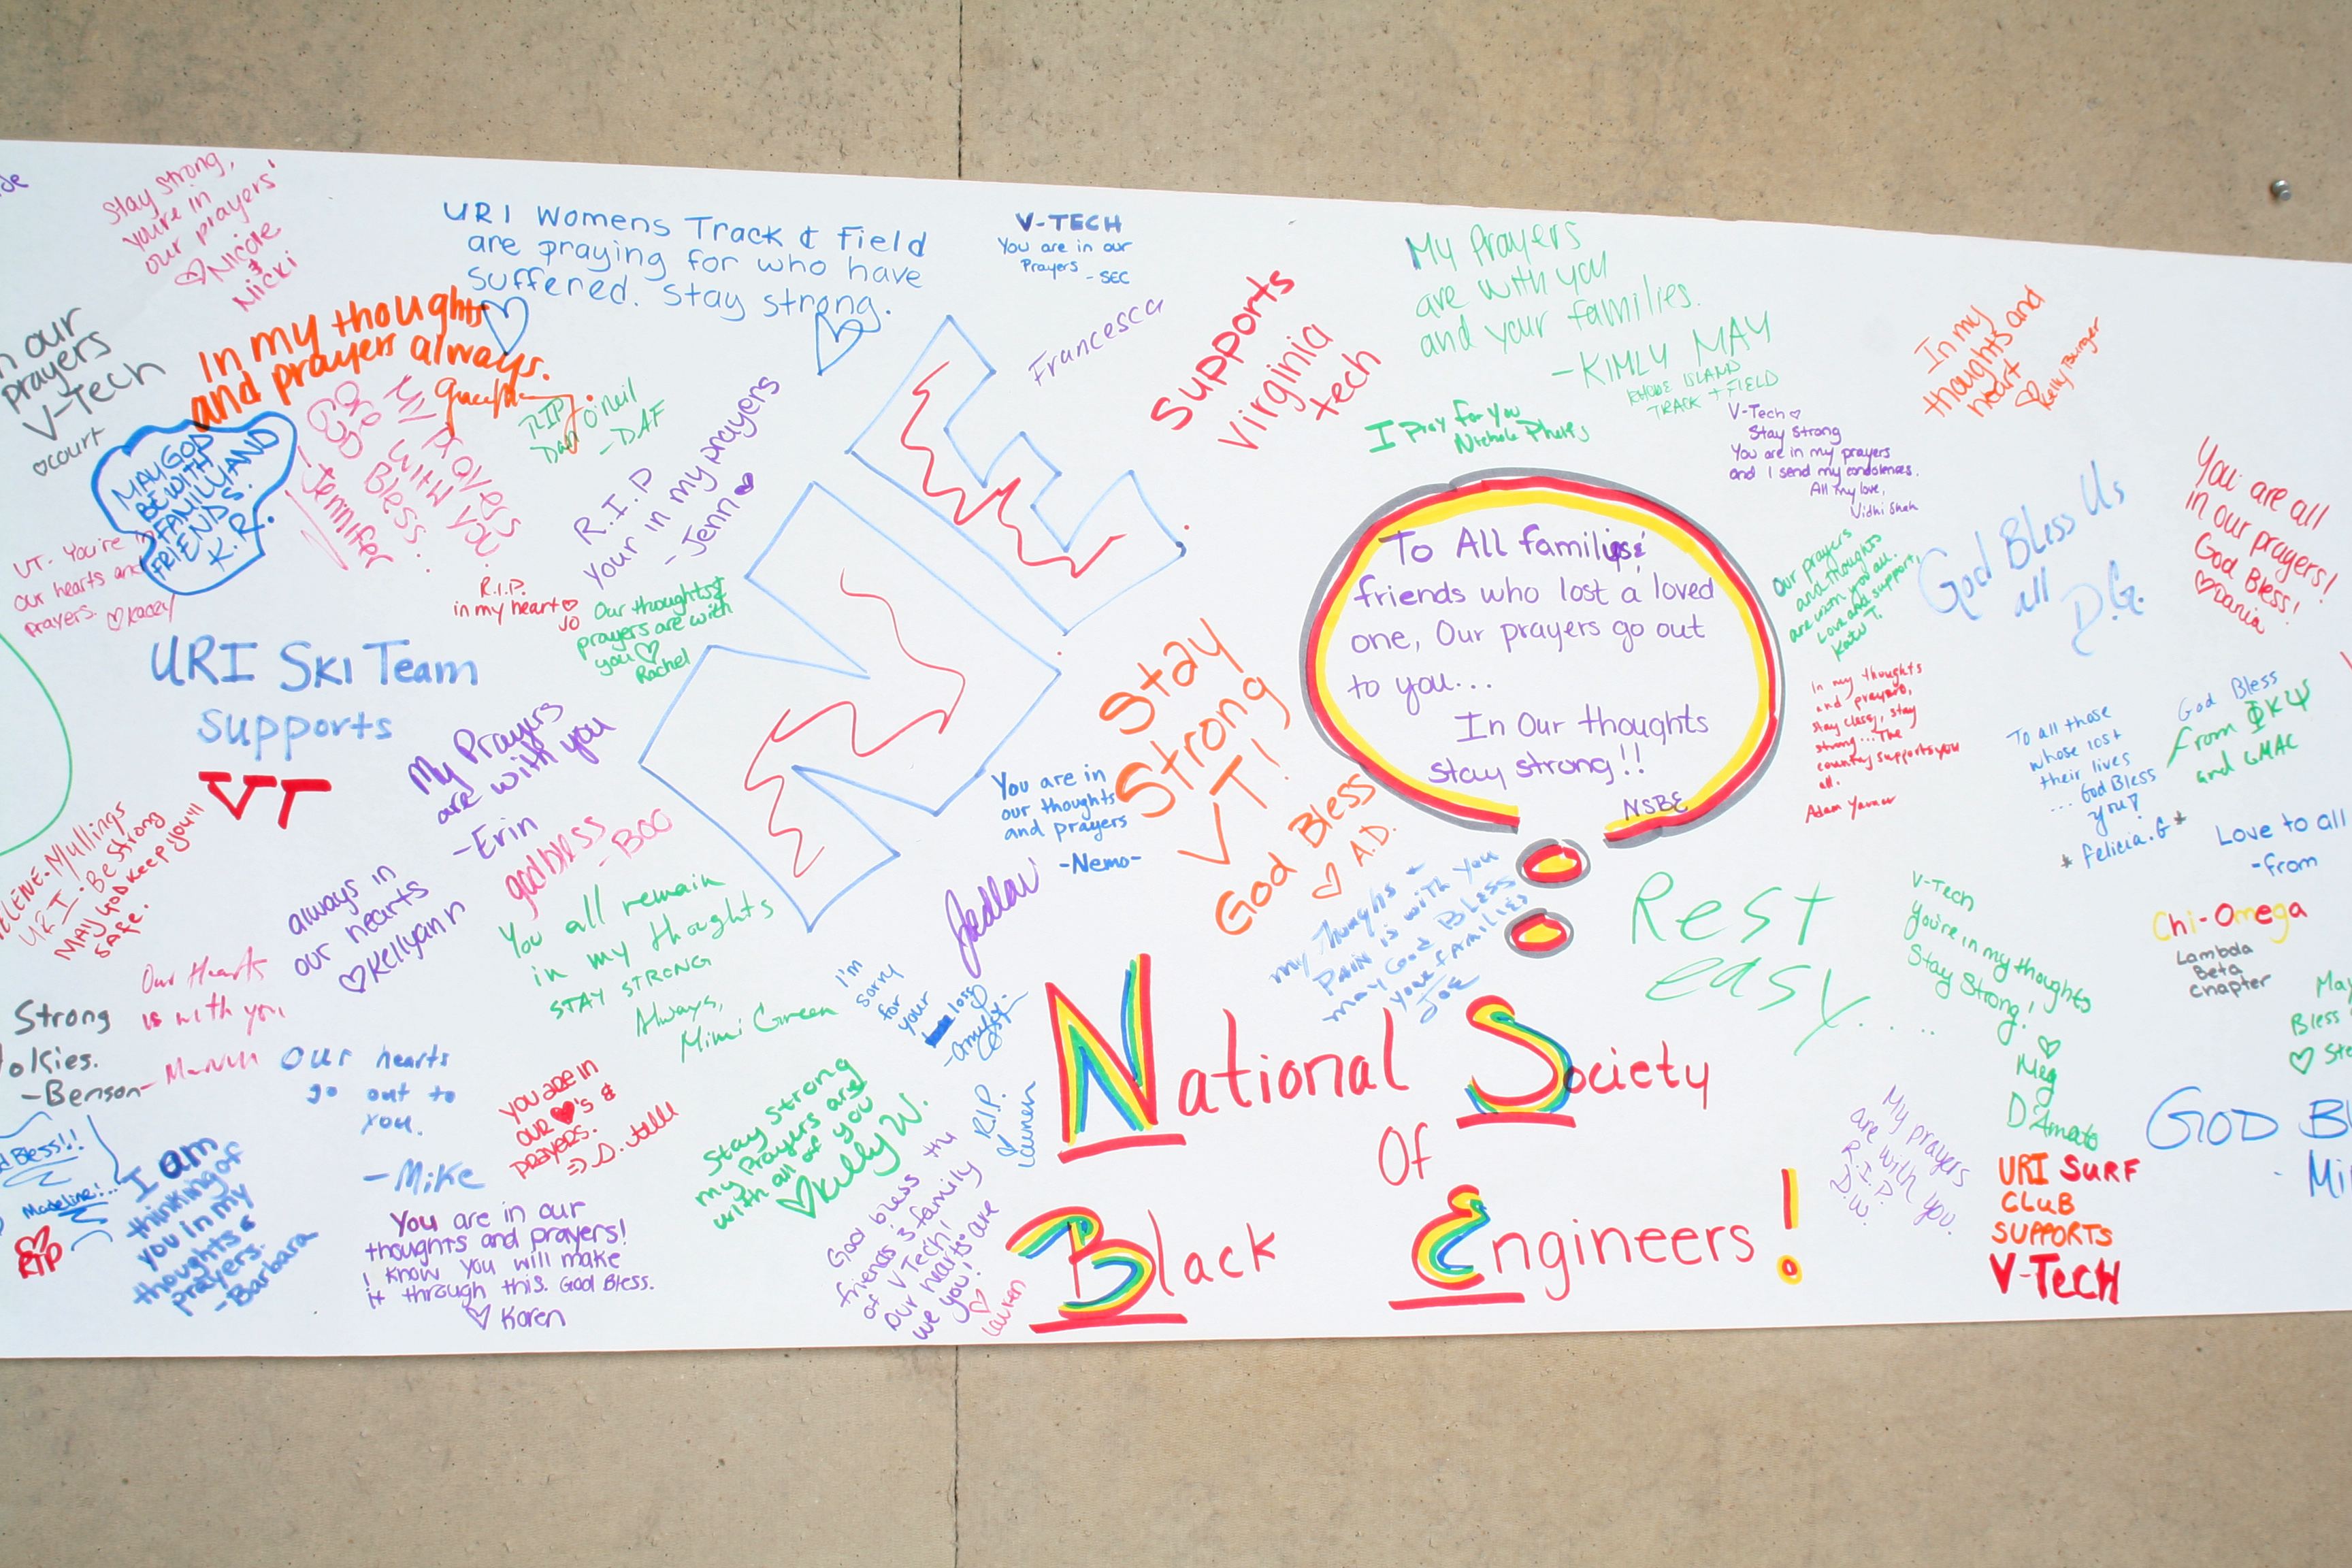 Stay strong,
you're in
our prayers'
Nicole
&
Nicki
URI Womens Track & Field
are praying for who have
suffered. Stay strong.
V-TECH
You are in our
Prayers
- SEC
Francesca
Supports
Virginia
tech
My Prayers
are with you
and your families.
- KIMLY MAY
RHODE ISLAND
TRACK + FIELD
I Pray for you
In my
thoughts and
heart
Kelly Burger
our
prayers
V-Tech
court
In my thoughts
and prayers always.
RIP
Dan O'Neil
- DAF
MAY GOD
BE WITH
FAMILY AND
FRIENDS.
K.R.
My prayers
are with you.
God Bless.
- Jennifer
R.I.P
Your in my prayers
- Jenn
V-Tech
Stay Strong
You are in my prayers
and I send my condolences.
All my love,
Vidhi Shah
VT. You're
our hearts and
prayers. Kaazy
R.I.P.
in my heart
JO
Our thoughts &
prayers are with
you
Rachel
NE
To All families &
friends who lost a loved
one, Our prayers go out
to you...
In Our thoughts
stay strong!!
NSBE
Our prayers
and thoughts
are with you all.
Love and support,
Katy T.
God Bless Us
all
D.G.
You are all
in our prayers!
God Bless!
Dania
URI Ski Team
Supports
VT
My Prayers
are with you
- Erin
Stay
Strong
VT!
In my thoughts
and prayers,
stay classy, stay
strong... The
country supports you
all.
Adam
To all those
whose lost
their lives
... God Bless
you!
* Felicia.G *
God Bless
From ΦΚΨ
and GMAC
Love to all
- from
Chi-Omega
Lambda
Beta
Chapter
Mullings
URI. Be Strong
MAY GOD keep you!!
SAFE.
always in
our hearts
Kellyann
godbless
- BOO
You all remain
in my thoughts
STAY STRONG
Always,
Mimi Green
You are in
our thoughts
and prayers
-Nemo-
God Bless
A.D.
my thoughts +
pain is with you
may God BLESS
your families
JOE
I'm
sorry
for
your
loss
Rest
easy....
V-Tech
you're in my thoughts
Stay Strong!
Meg
D'Amato
Our Hearts
is with you
Strong
okies.
-Benson-
Our hearts
go out to
you.
-Mike
you are in
our ♥'s &
prayers.
Stay strong
my Prayers are
with all of you
Kelly W.
R.I.P.
Lauren
National Society
Of
Black Engineers!
May
Bless
Ste
My prayers
are with you.
R.I.P.
D.W.
GOD B
Mi
URI SURF
CLUB
SUPPORTS
V-TECH
Bless!!
Madeline!
RIP
I am
thinking of
you in my
thoughts &
prayers.
-Barbara
You are in our
thoughts and prayers!
I know you will make
it through this. God Bless.
Karen
God bless the
friends & family
of V Tech!
our hearts are
we you!
Lauren